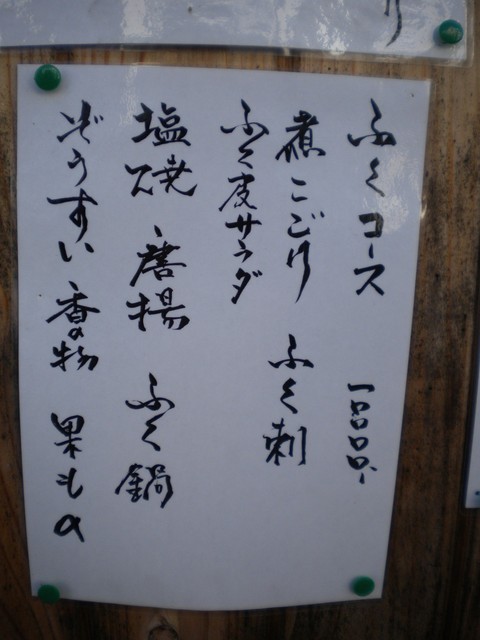 ふくコース 一〇〇〇〇、
煮こごり ふく刺
ふく皮サラダ
塩焼、唐揚 ふく鍋
ぞうすい 香の物 果もの